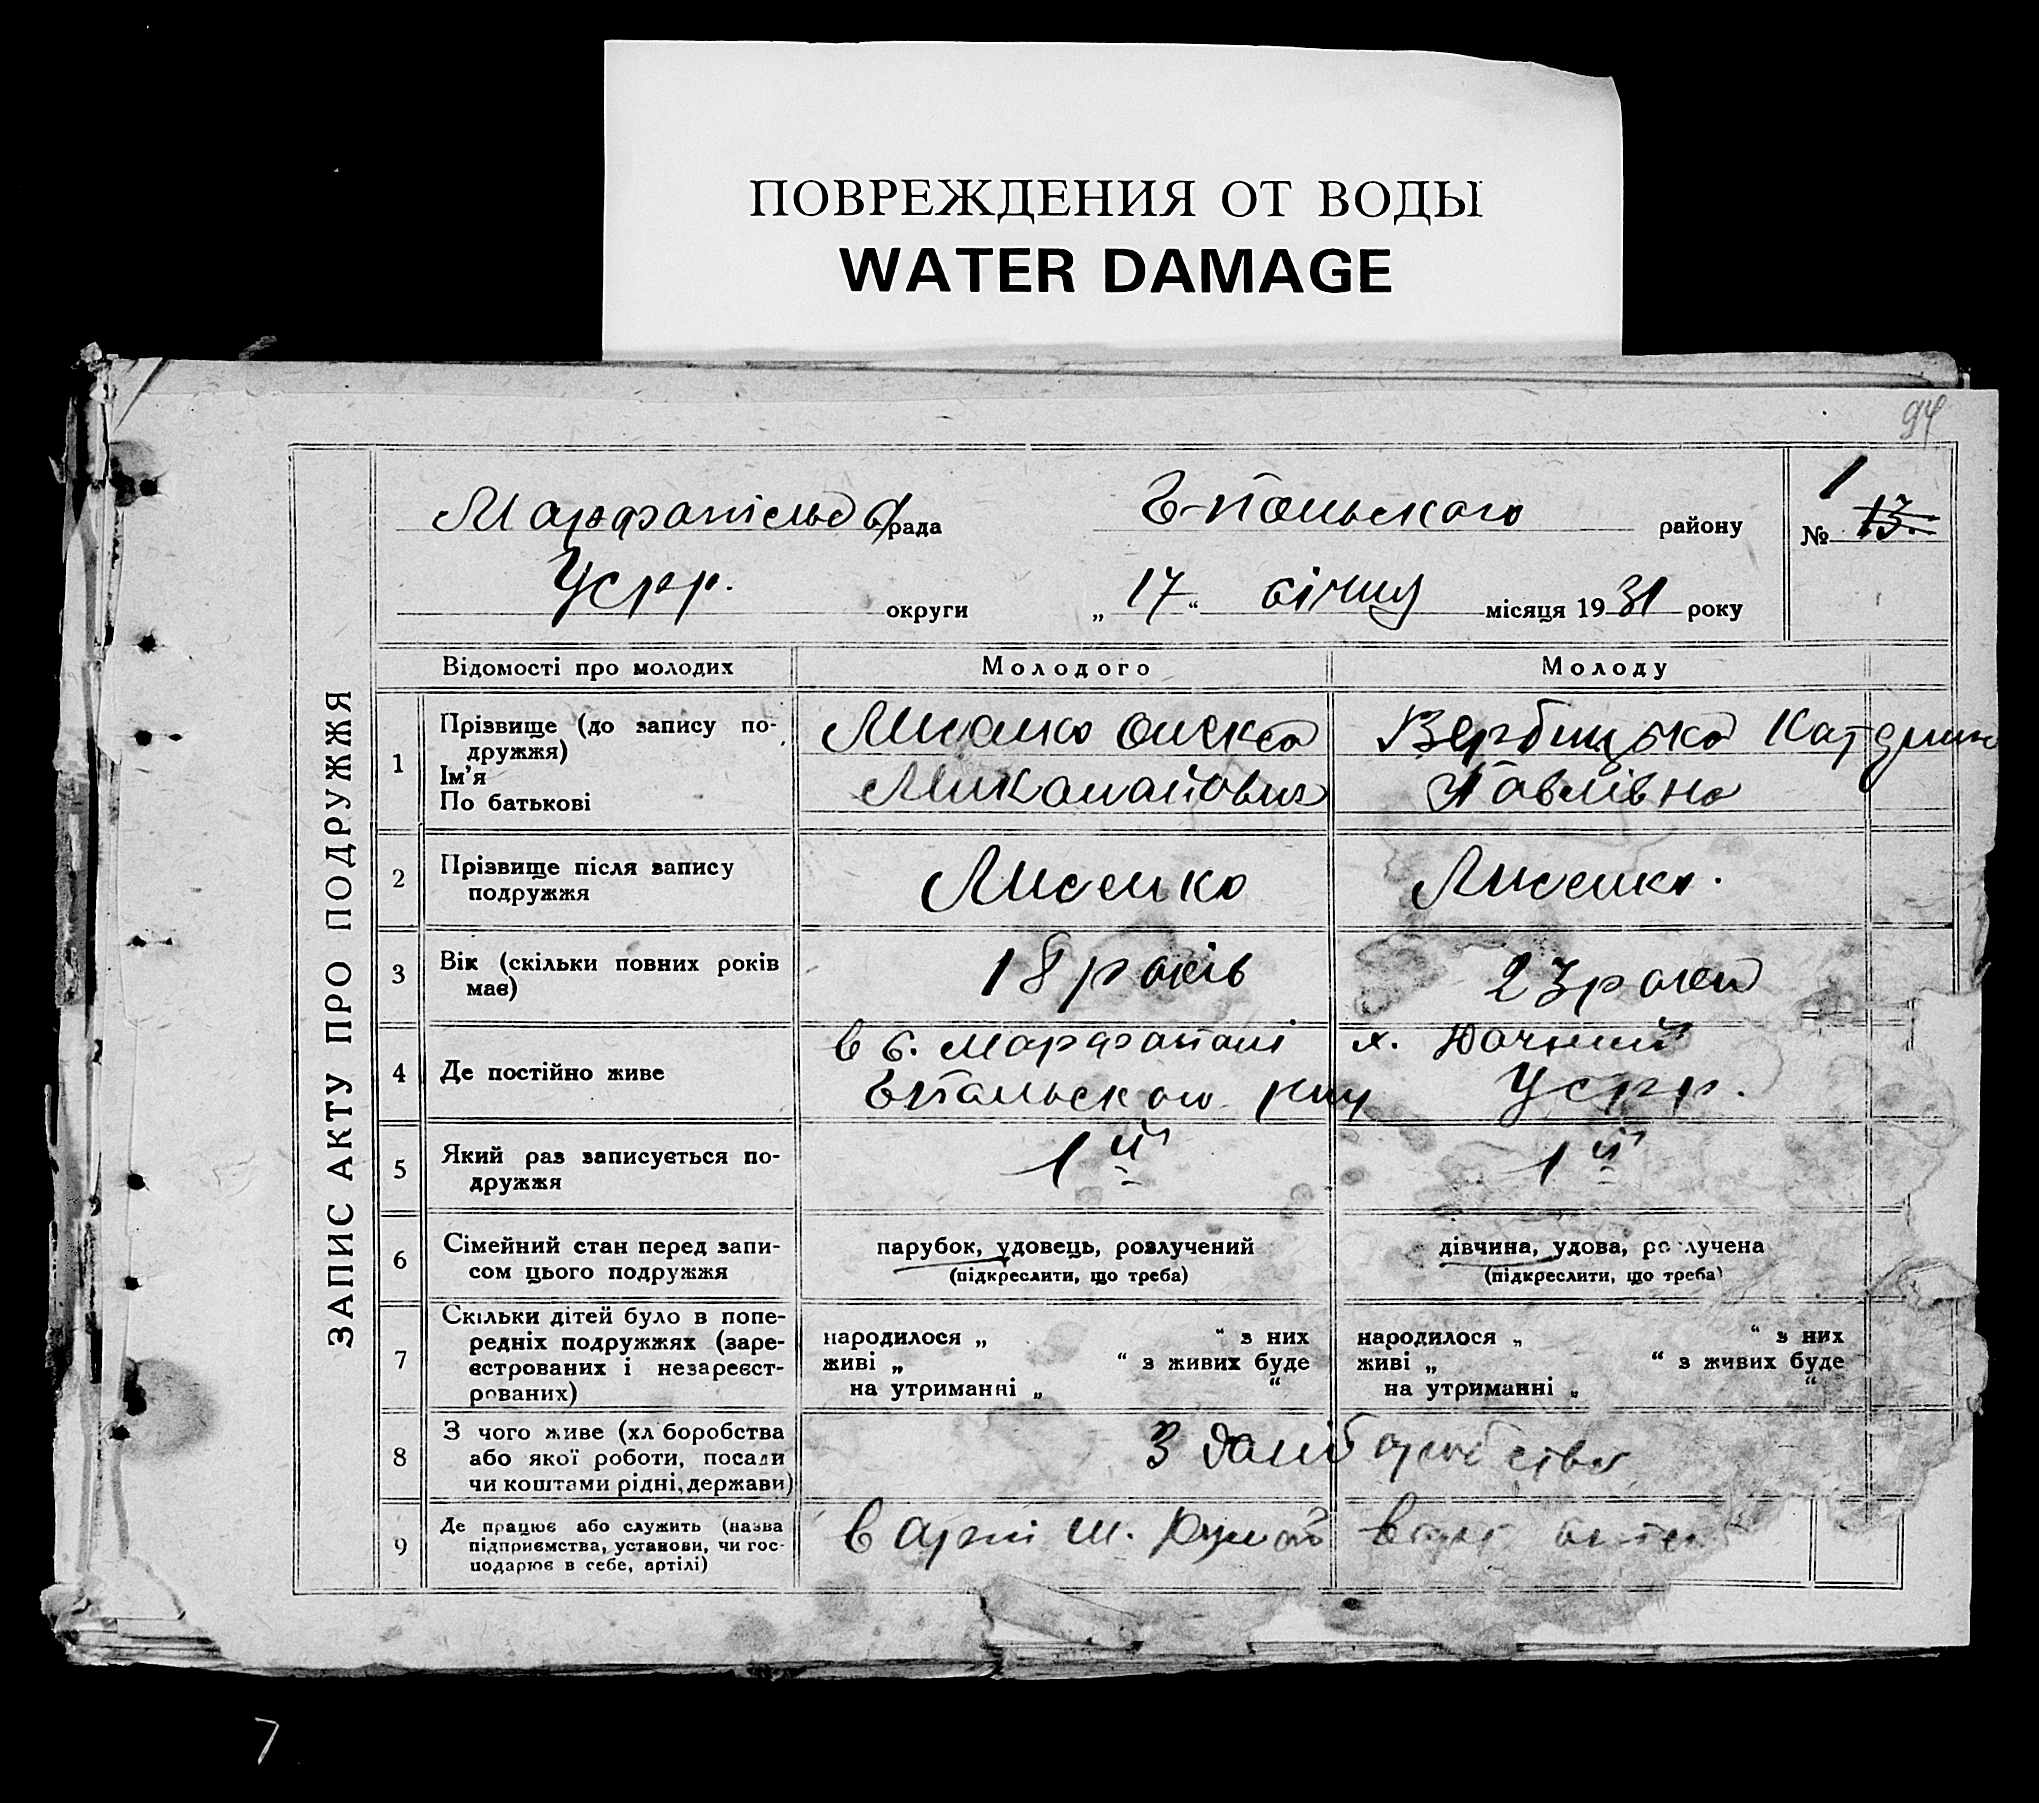 ПОВРЕЖДЕНИЯ ОТ ВОДЫ
WATER DAMAGE
94
ЗАПИС АКТУ ПРО ПОДРУЖЖЯ
рада
району
1
№ 13.
Усрр. округи
„ 17 “ січня місяця 1931 року
Відомості про молодих
Молодого
Молоду
1
Прізвище (до запису по-
дружжя)
Ім’я
По батькові
Олекса
Миколайович
Вербицька Катерина
Павлівна
2
Прізвище після запису
подружжя
Лисенко
Лисенко.
3
Вік (скільки повних років
має)
18 років
23 роки
4
Де постійно живе
в с.
х. Дачний
Усрр.
5
Який раз записується по-
дружжя
1й
1й
6
Сімейний стан перед запи-
сом цього подружжя
парубок, удовець, розлучений
(підкреслити, що треба)
дівчина, удова, ро лучена
(підкреслити, що треба)
7
Скільки дітей було в попе-
редніх подружжях (заре-
єстрованих і незареєст-
рованих)
народилося „ “ з них
живі „ “ з живих буде
на утриманні „ “
народилося „ “ з них
живі „ “ з живих буде
на утриманні „ “
8
З чого живе (хл боробства
або якої роботи, посади
чи коштами рідні, держави)
З
9
Де працює або служить (назва
підприємства, установи, чи гос-
подарює в себе, артілі)
в
7